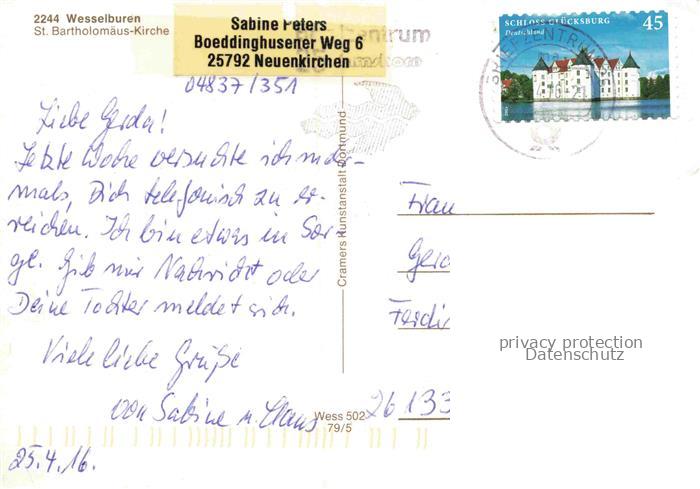 2244 Wesselburen
St. Bartholomäus-Kirche
Sabine Peters
Boeddinghusener Weg 6
25792 Neuenkirchen
04837/351
SCHLOSS GLÜCKSBURG 45
Deutschland
BRIEFZENTRUM
Liebe Gerda!
Letzte Woche versuchte ich mehr-
mals, Dich telefonisch zu er-
reichen. Ich bin etwas in Sor-
ge. Gib mir Nachricht oder
Deine Tochter meldet sich.
Viele liebe Grüße
von Sabine u. Claus
25.4.16.
Cramers Kunstanstalt Dortmund
Wess 502
79/5
Frau
Gerd
Ferdin
26133
privacy protection
Datenschutz